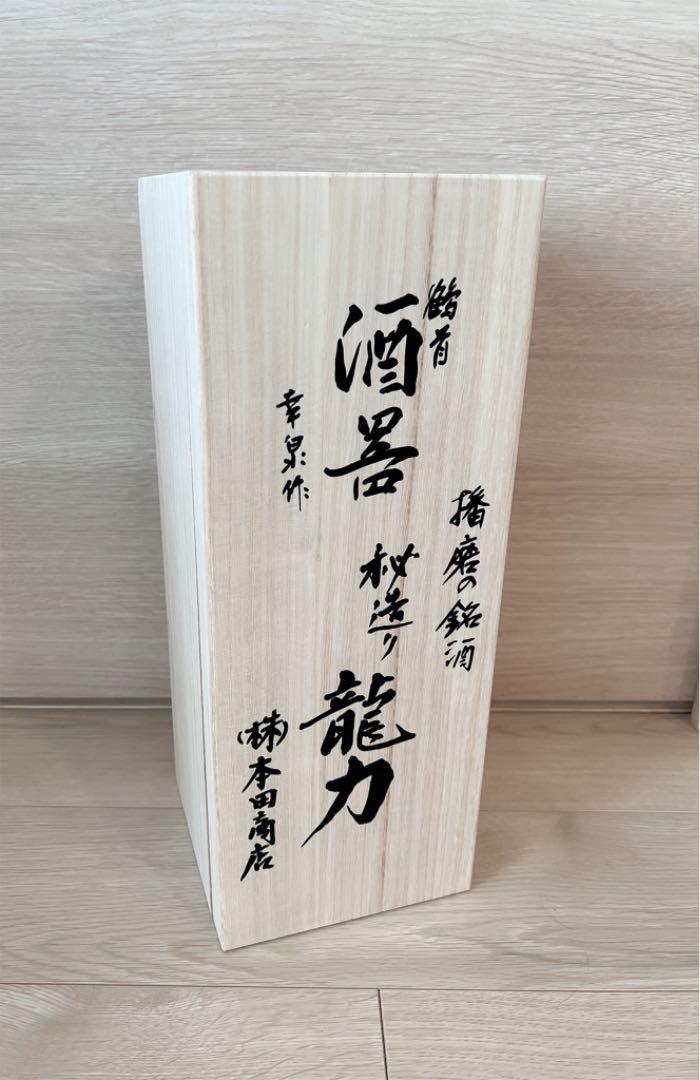 鶴首
酒器
幸泉作
播磨の銘酒
秘造り
龍力
(株)本田商店